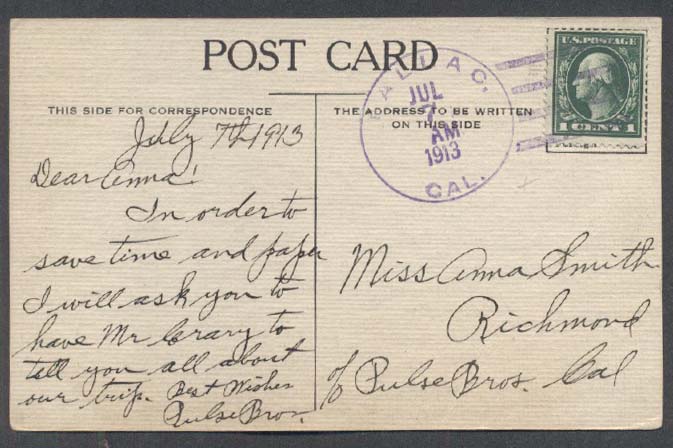 POST CARD
THIS SIDE FOR CORRESPONDENCE
July 7th 1913
Dear Anna!
In order to
save time and paper
I will ask you to
have Mr Crary to
tell you all about
our trip. Best Wishes
Pulse Bros.
THE ADDRESS TO BE WRITTEN
ON THIS SIDE
JUL
7
AM
1913
CAL.
U.S. POSTAGE
1 CENT 1
Miss Anna Smith
Richmond
c/o Pulse Bros. Cal